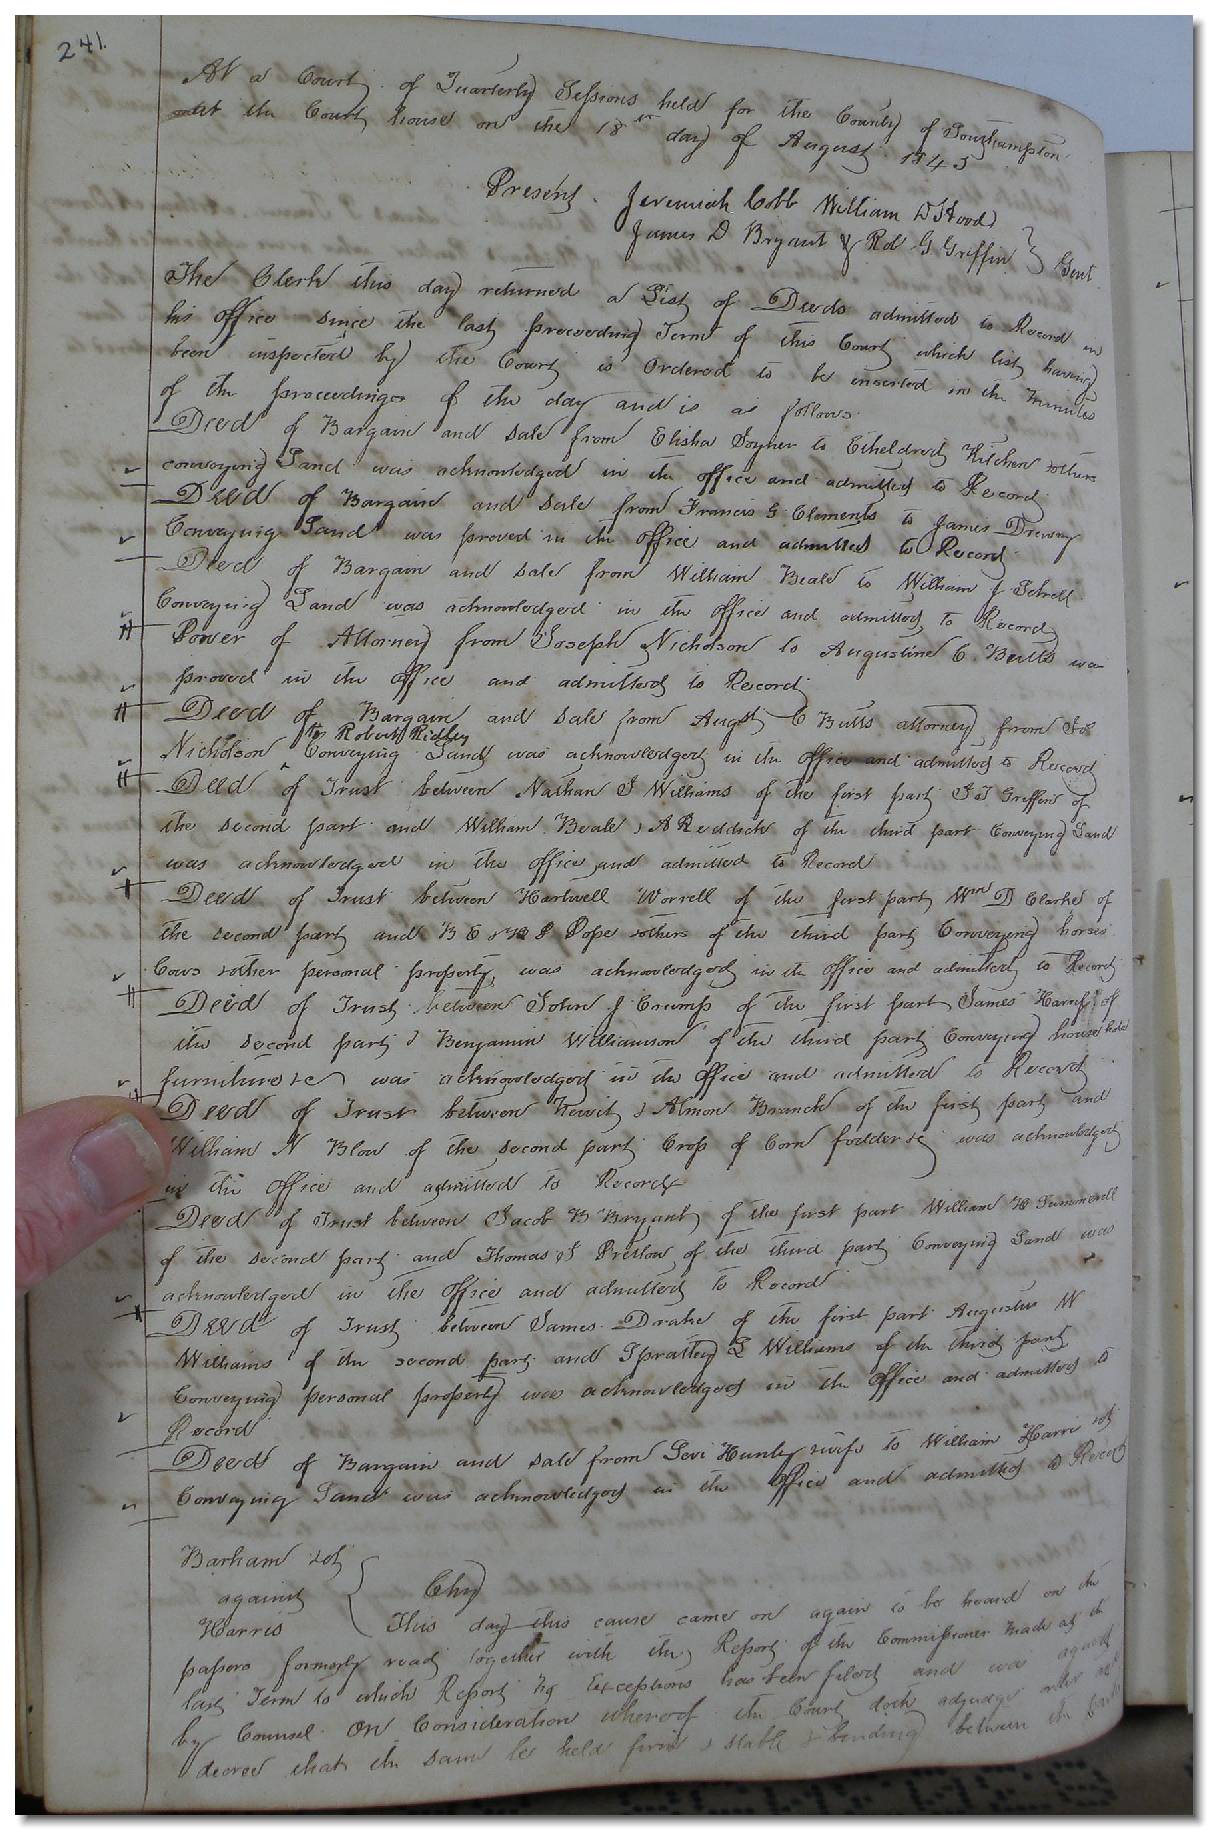 241.
At a Court of Quarterly Sessions held for the County of Southampton
at the Court house on the 18th day of August 1845
Present. Jeremiah Cobb William D Hood
James D Bryant & Ro G Griffin } Gent.
The Clerk this day returned a List of Deeds admitted to Record in
his office since the last preceeding Term of this Court which list having
been inspected by the Court is Ordered to be inserted in the minutes
of the proceedings of the day and is as follows
Deed of Bargain and sale from Elisha Joyner to Etheldred Kitchen & others
conveying Land was acknowledged in the office and admitted to Record
Deed of Bargain and sale from Francis G Clements to James Drewry
Conveying Land was proved in the office and admitted to Record
Deed of Bargain and sale from William Beale to William J Sebrell
Conveying Land was acknowledged in the office and admitted to Record
Power of Attorney from Joseph Nicholson to Augustine C. Butts was
proved in the office and admitted to Record
Deed of Bargain and sale from Augst C Butts attorney from Jos
to Robert Ridley
Nicholson ^ Conveying Land was acknowledged in the Office and admitted to Record
Deed of Trust between Nathan J Williams of the first part J J Griffin of
the second part and William Beale & A Reddick of the third part Conveying Land
was acknowledged in the office and admitted to Record
Deed of Trust between Hartwell Worrell of the first part Wm D Clarke of
the second part and B E & Pope & others of the third part Conveying horses
Cows & other personal property, was acknowledged in the office and admitted to Record
Deed of Trust between John J Crump of the first part James Harris of
the second part & Benjamin Williamson of the third part Conveying household
furniture &c was acknowledged in the office and admitted to Record
Deed of Trust between Newit & Almon Branch of the first part and
William N Blow of the second part Crop of Corn fodder &c was acknowledged
in the office and admitted to Record
Deed of Trust between Jacob B Bryant of the first part William H Summerell
of the second part and Thomas J Pretlow of the third part Conveying Land was
acknowledged in the office and admitted to Record
Deed of Trust between James Drake of the first part Augustus W
Williams of the second part and Spratley L Williams of the third part
Conveying personal property was acknowledged in the office and admitted to
Record
Deed of Bargain and sale from Levi Hunt & wife to William Harris &c
Conveying Land was acknowledged in the Office and admitted to Record
Barham &c
against } Chy
Harris This day this cause came on again to be heard on the
papers formerly read together with the Report of the Commissioner made at the
last Term to which Report no Exceptions has been filed and was argued
by Counsel On Consideration whereof the Court doth adjudge order and
decree that the same be held firm & stable & binding between the parties